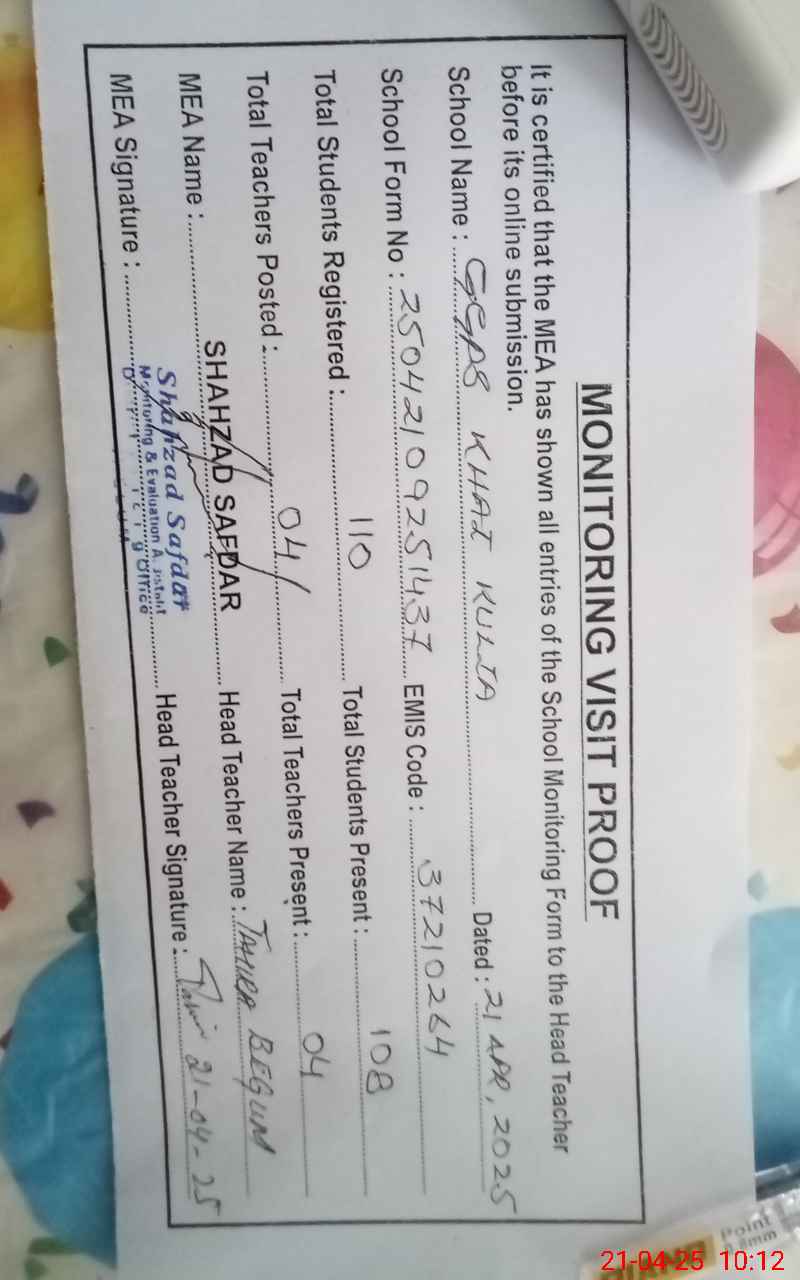 MONITORING VISIT PROOF
It is certified that the MEA has shown all entries of the School Monitoring Form to the Head Teacher
before its online submission.
School Name : GGPS KHAI KULIA Dated : 21 APR, 2025
School Form No : 25042109251437 EMIS Code : 37210264
Total Students Registered : 110 Total Students Present : 108
Total Teachers Posted : 04 Total Teachers Present : 04
MEA Name : SHAHZAD SAFDAR Head Teacher Name : TAHIRA BEGUM
MEA Signature : Head Teacher Signature : 21-04-25
Shahzad Safdar
Monitoring & Evaluation Assistant
Office
Point
0.8mm
21-04-25 10:12